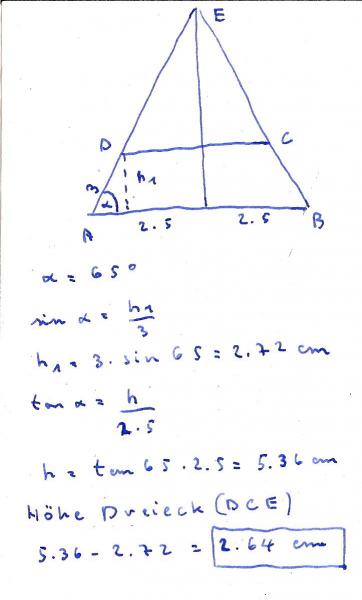 E
D
C
3
h₁
α
2.5
2.5
A
B
α = 65°
sin α = h₁/3
h₁ = 3 · sin 65 = 2.72 cm
tan α = h/2.5
h = tan 65 · 2.5 = 5.36 cm
Höhe Dreieck (DCE)
5.36 - 2.72 = 2.64 cm